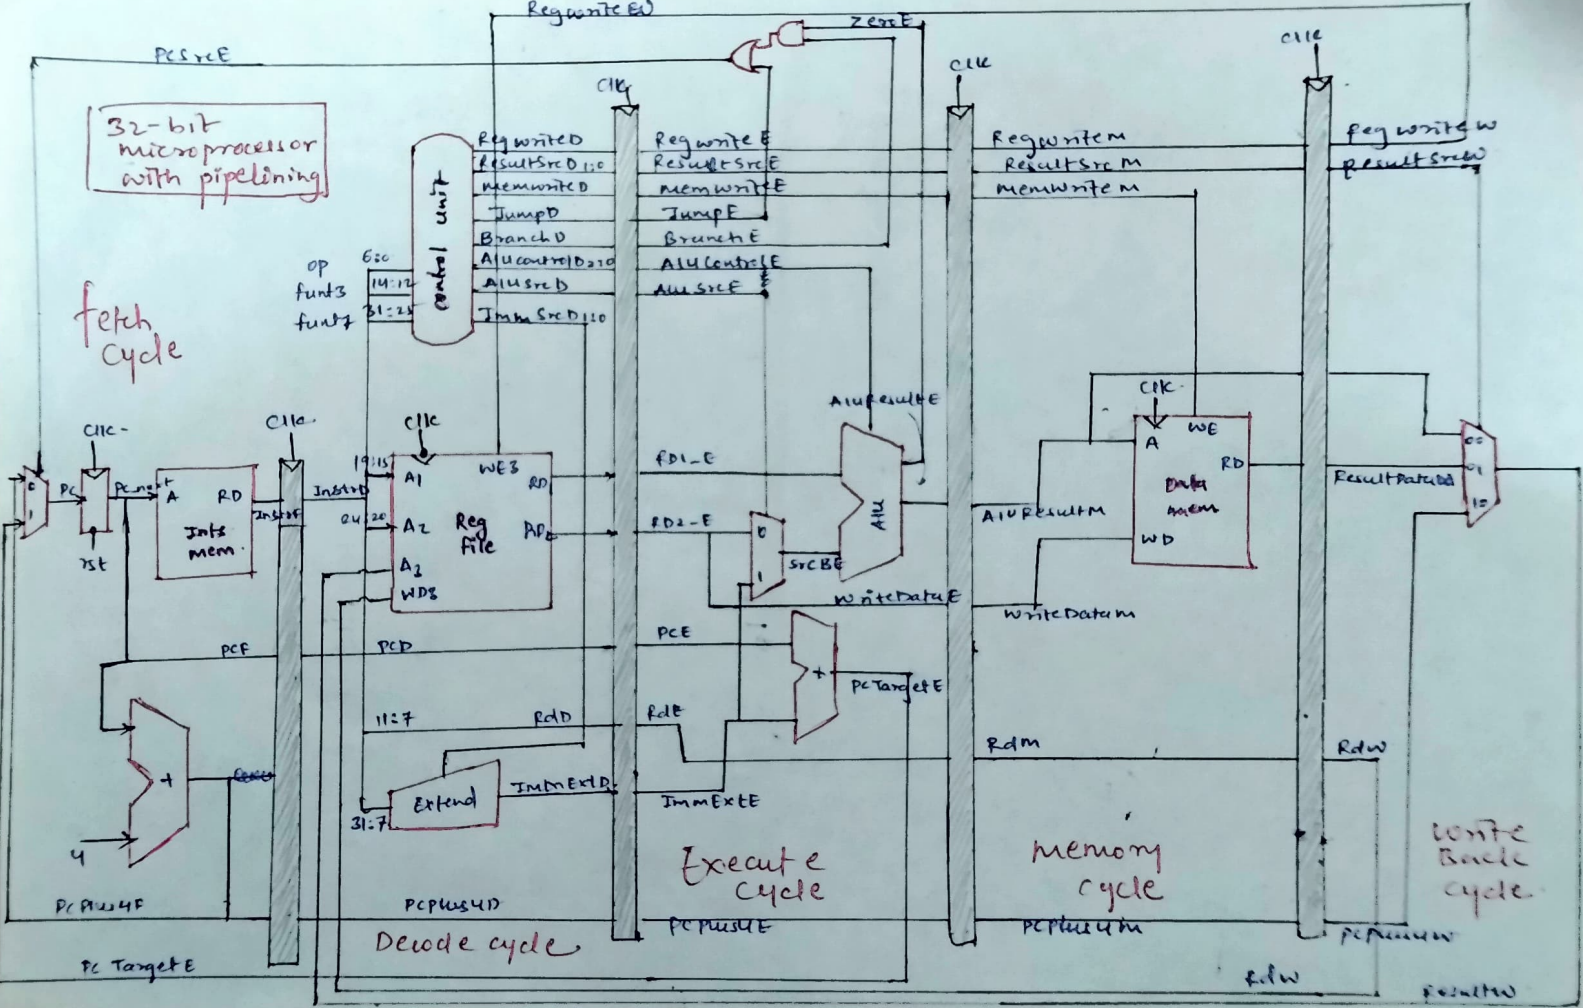 RegwriteW
ZeroE
PCSrcE
Clk
Clk
Clk
32-bit
microprocessor
with pipelining
control unit
RegwriteD
ResultSrcD1:0
memwriteD
JumpD
BranchD
AlucontrolD2:0
AluSrcD
ImmSrcD1:0
RegwriteE
ResultSrcE
memwriteE
JumpE
BranchE
AluControlE
AluSrcE
RegwriteM
ResultSrcM
memwriteM
RegwriteW
ResultSrcW
op
6:0
funt3
14:12
funt7
31:25
fetch
cycle
Clk
Clk
Clk
Clk
0
1
PC
PC_next
rst
A
RD
Ints
mem.
InstrF
InstrD
19:15
24:20
A1
A2
A3
WD3
WE3
RD
RD2
Reg
file
RD1_E
RD2_E
0
1
SrcBE
AluResultE
Alu
WriteDataE
AluResultM
WriteDataM
A
WE
RD
WD
Data
mem
ResultDataW
00
01
10
PCF
PCD
PCE
+
PCTargetE
11:7
RdD
RdE
RdM
RdW
+
4
Extend
31:7
ImmExtD
ImmExtE
Execute
cycle
memory
cycle
write
Back
cycle
PCPlus4F
PCPlus4D
PCPlus4E
PCPlus4M
PCPlus4W
Decode cycle
PC TargetE
RdW
ResultW